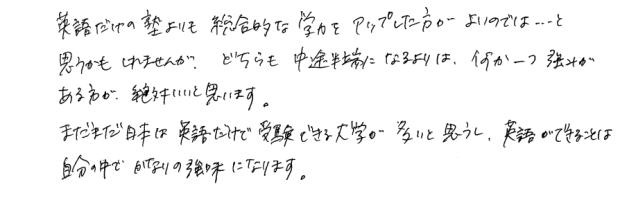 英語だけの塾よりも 総合的な学力を アップした方が よいのでは…と
思うかも しれませんが、どちらも 中途半端に なるよりは、何か一つ 強みが
ある方が、絶対いいと思います。
まだまだ日本は 英語だけで 受験できる大学が 多いと思うし、英語ができることは
自分の中で かなりの強味になります。